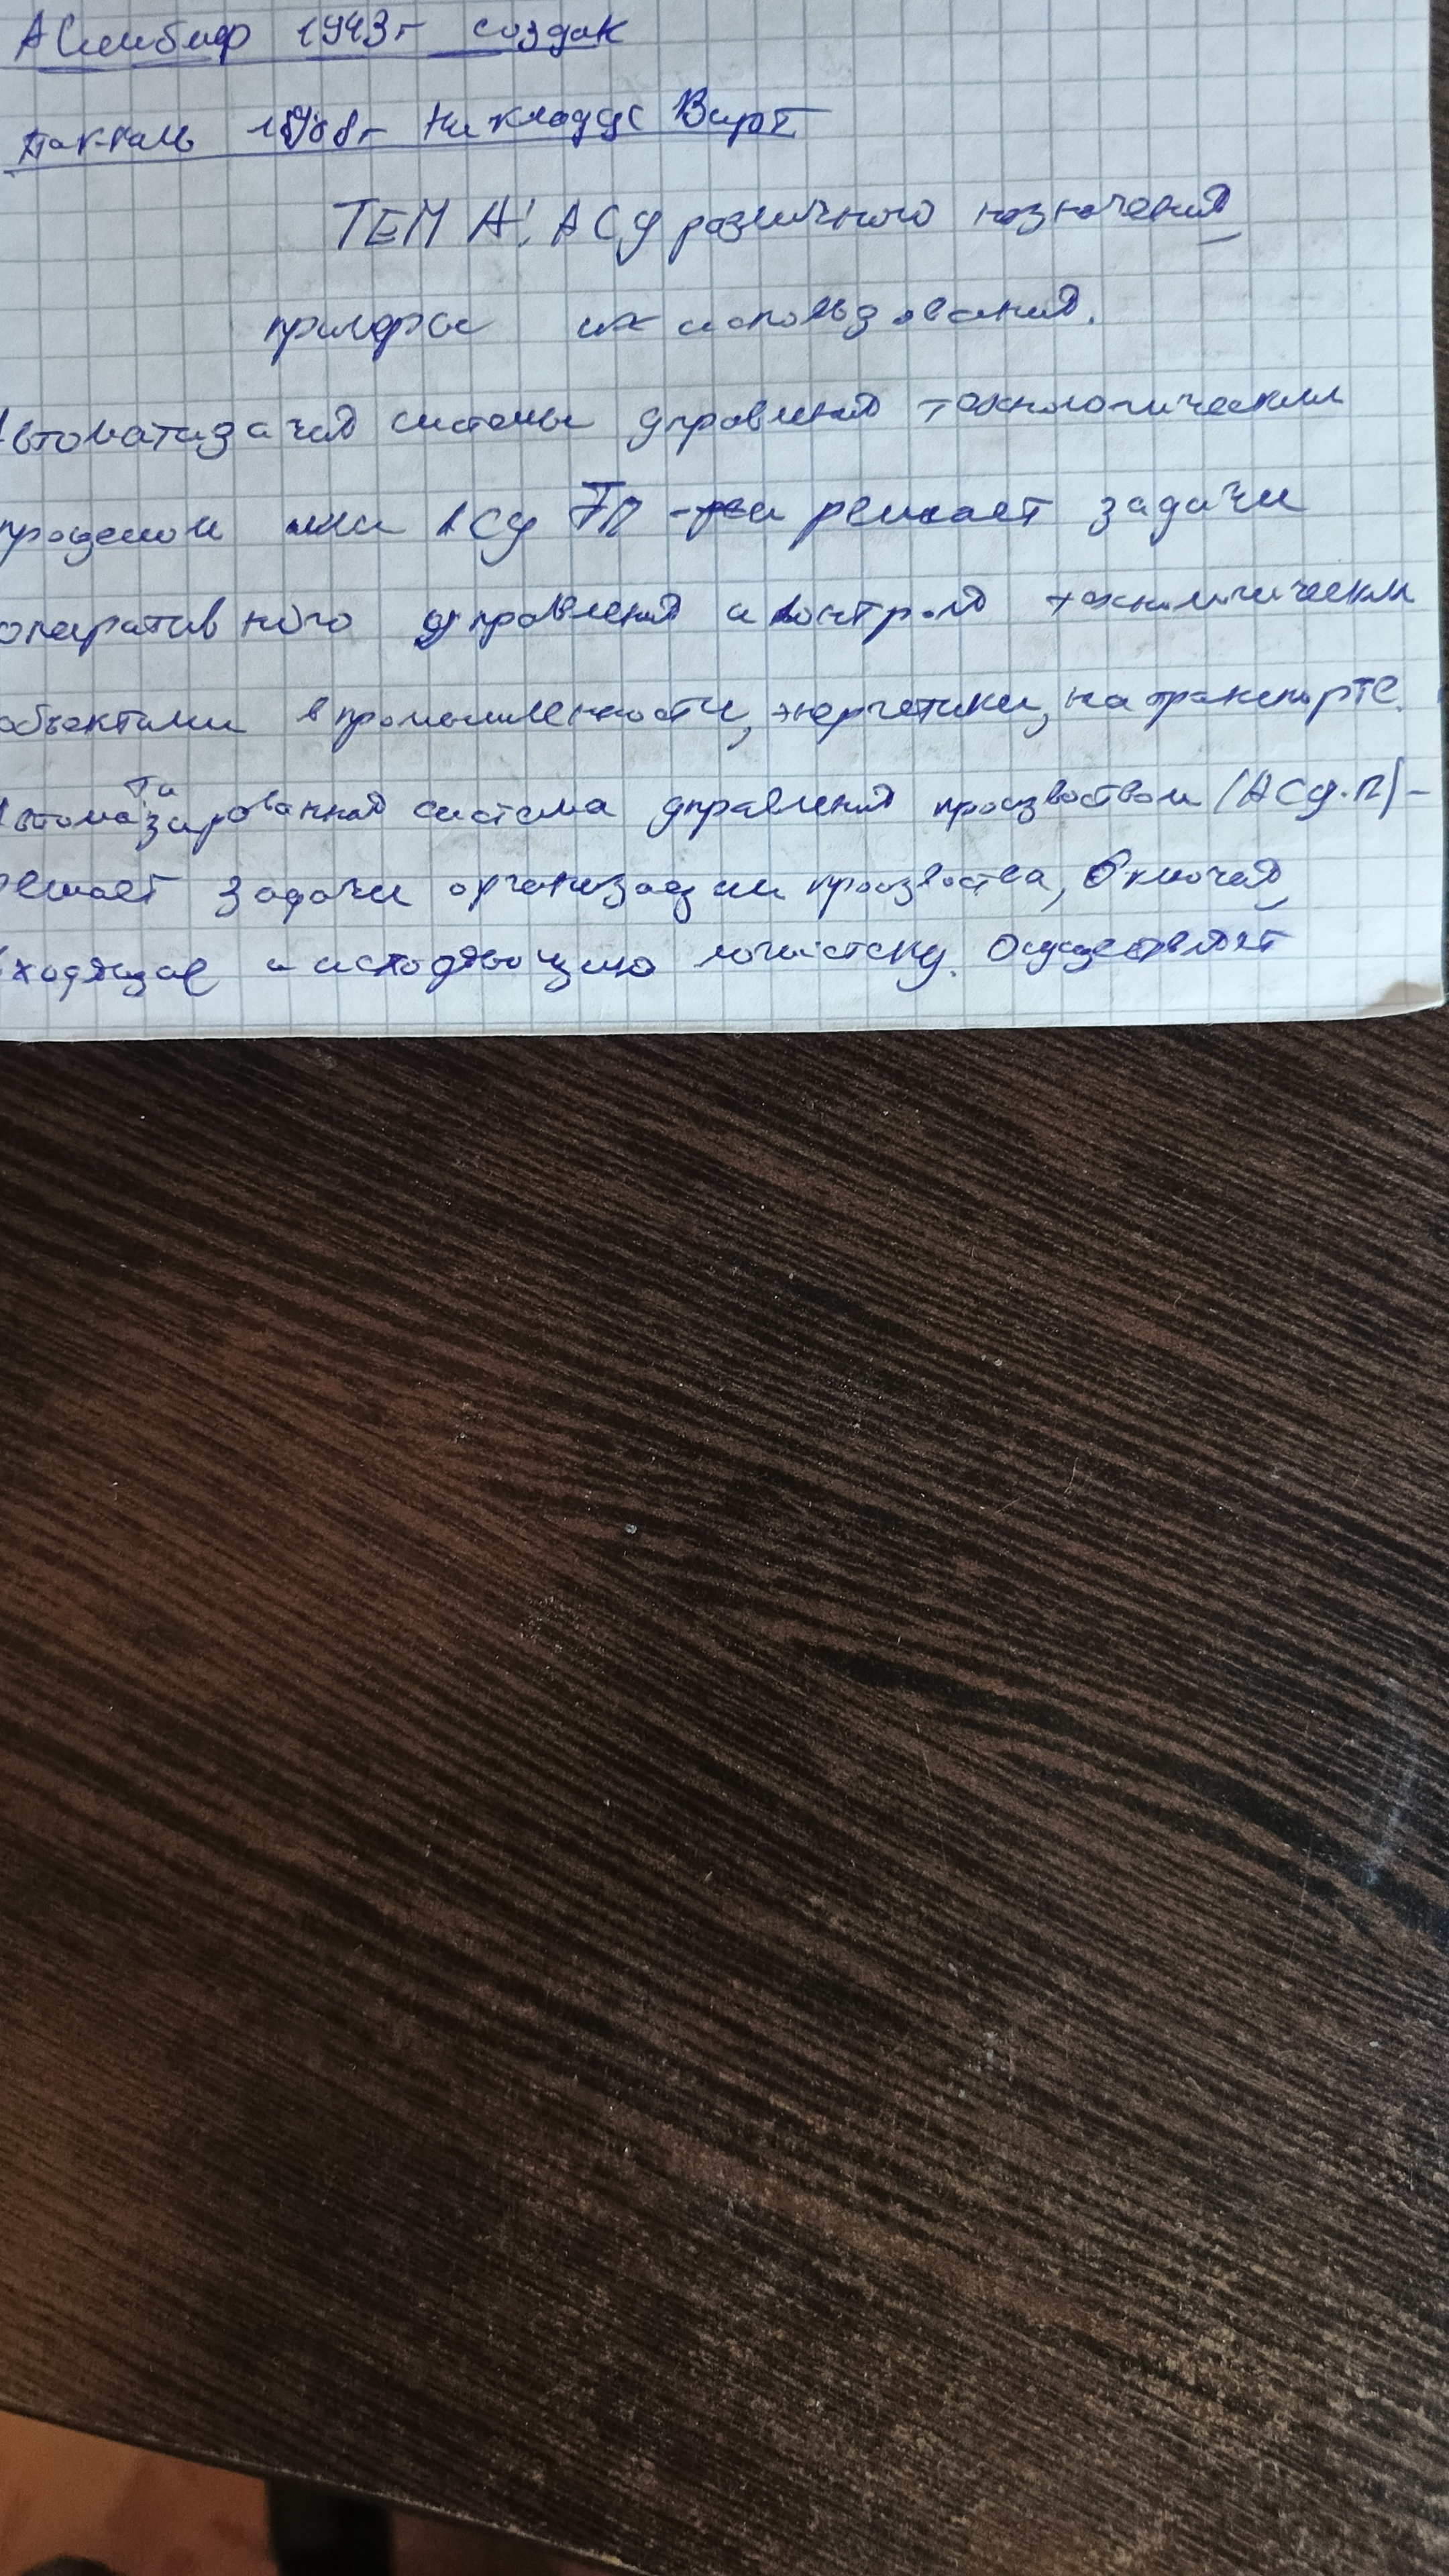 АСимблер 1943г создак
Паскаль 1968г Никлаус Вирт
ТЕМА: АСУ различного назначения
примеры их использования.
Автоматизачия системы управления технологическим
процессом или АСУ ТП - решает задачи
оперативного управления и контроля технологическим
объектами в промышленности, энергетики, на транспорте.
Автоматизированная система управления произвоством (АСУ.П) -
решает задачи организации произвоства, включая
входящие и исходящую логистику. Осуществляет